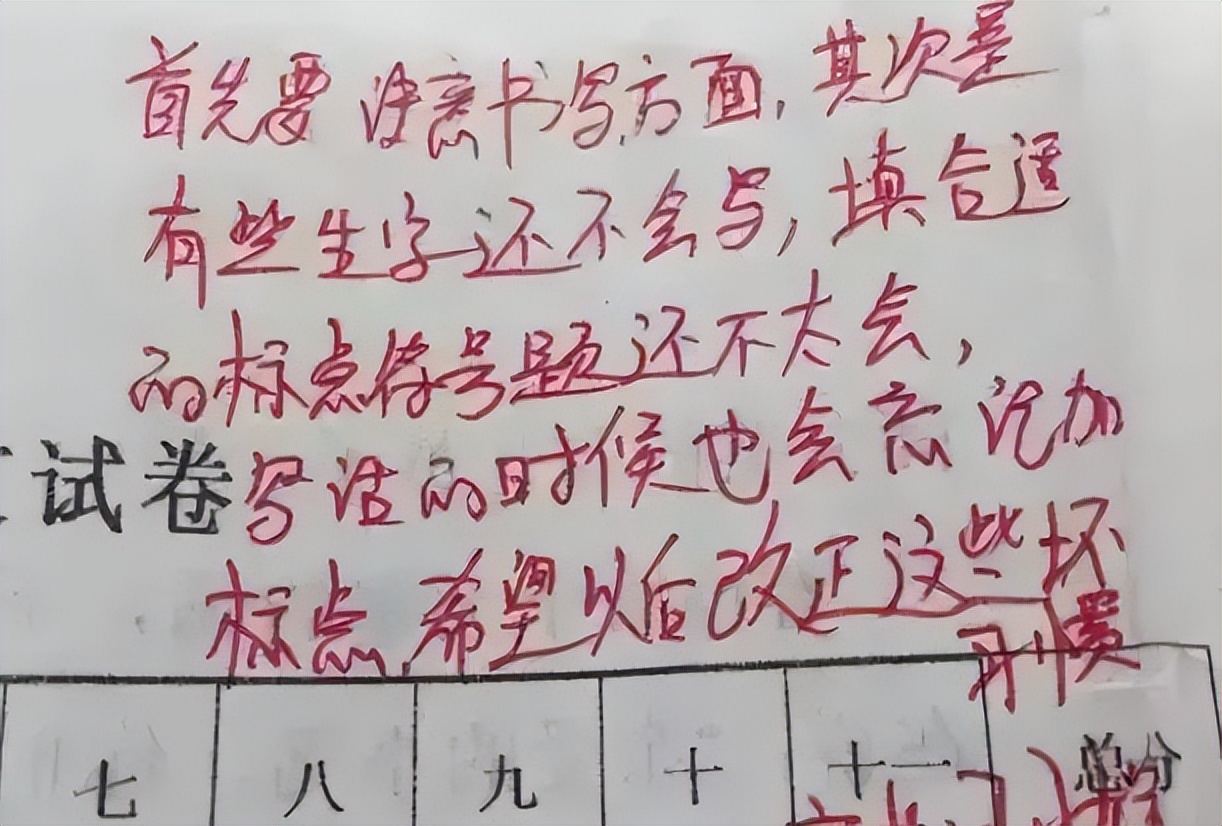 首先要注意书写方面,其次是
有些生字还不会写,填合适
的标点符号题还不太会,
试卷 写话的时候也会忘记加
标点,希望以后改正这些坏
习惯
七 八 九 十 十一 总分